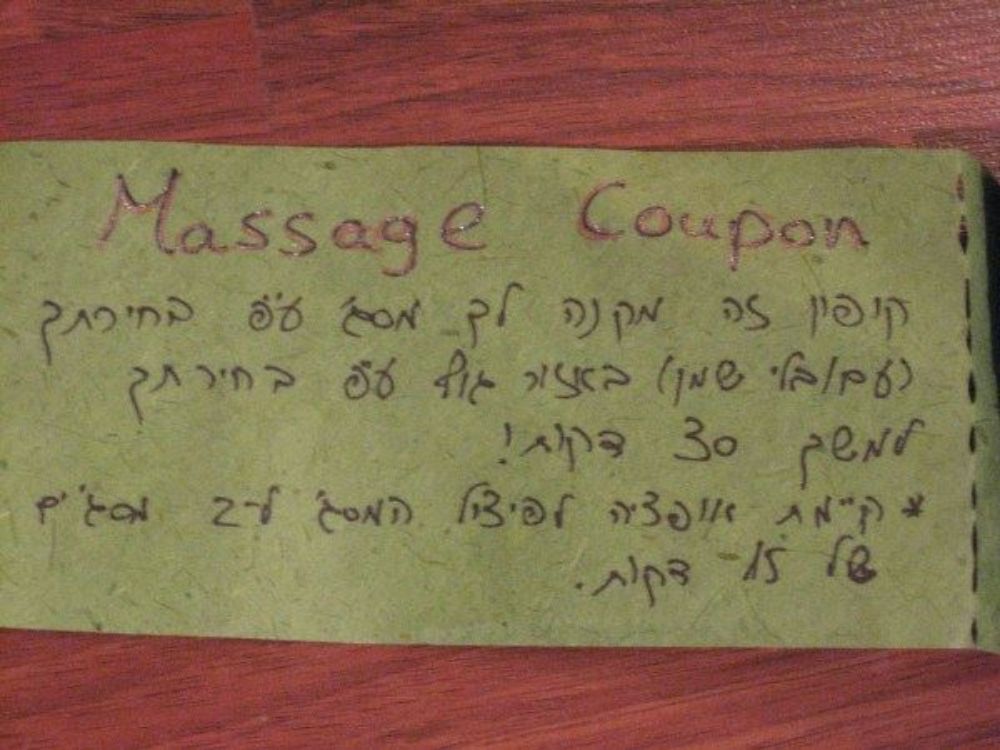 Massage Coupon
קופון זה מקנה לך מסג' ע"פ בחירתך
(עם/בלי שמן) באזור גוף ע"פ בחירתך
למשך 30 דקות!
* קיימת אופציה לפיצול המסג' ל-2 מסג'ים
של 15 דקות.